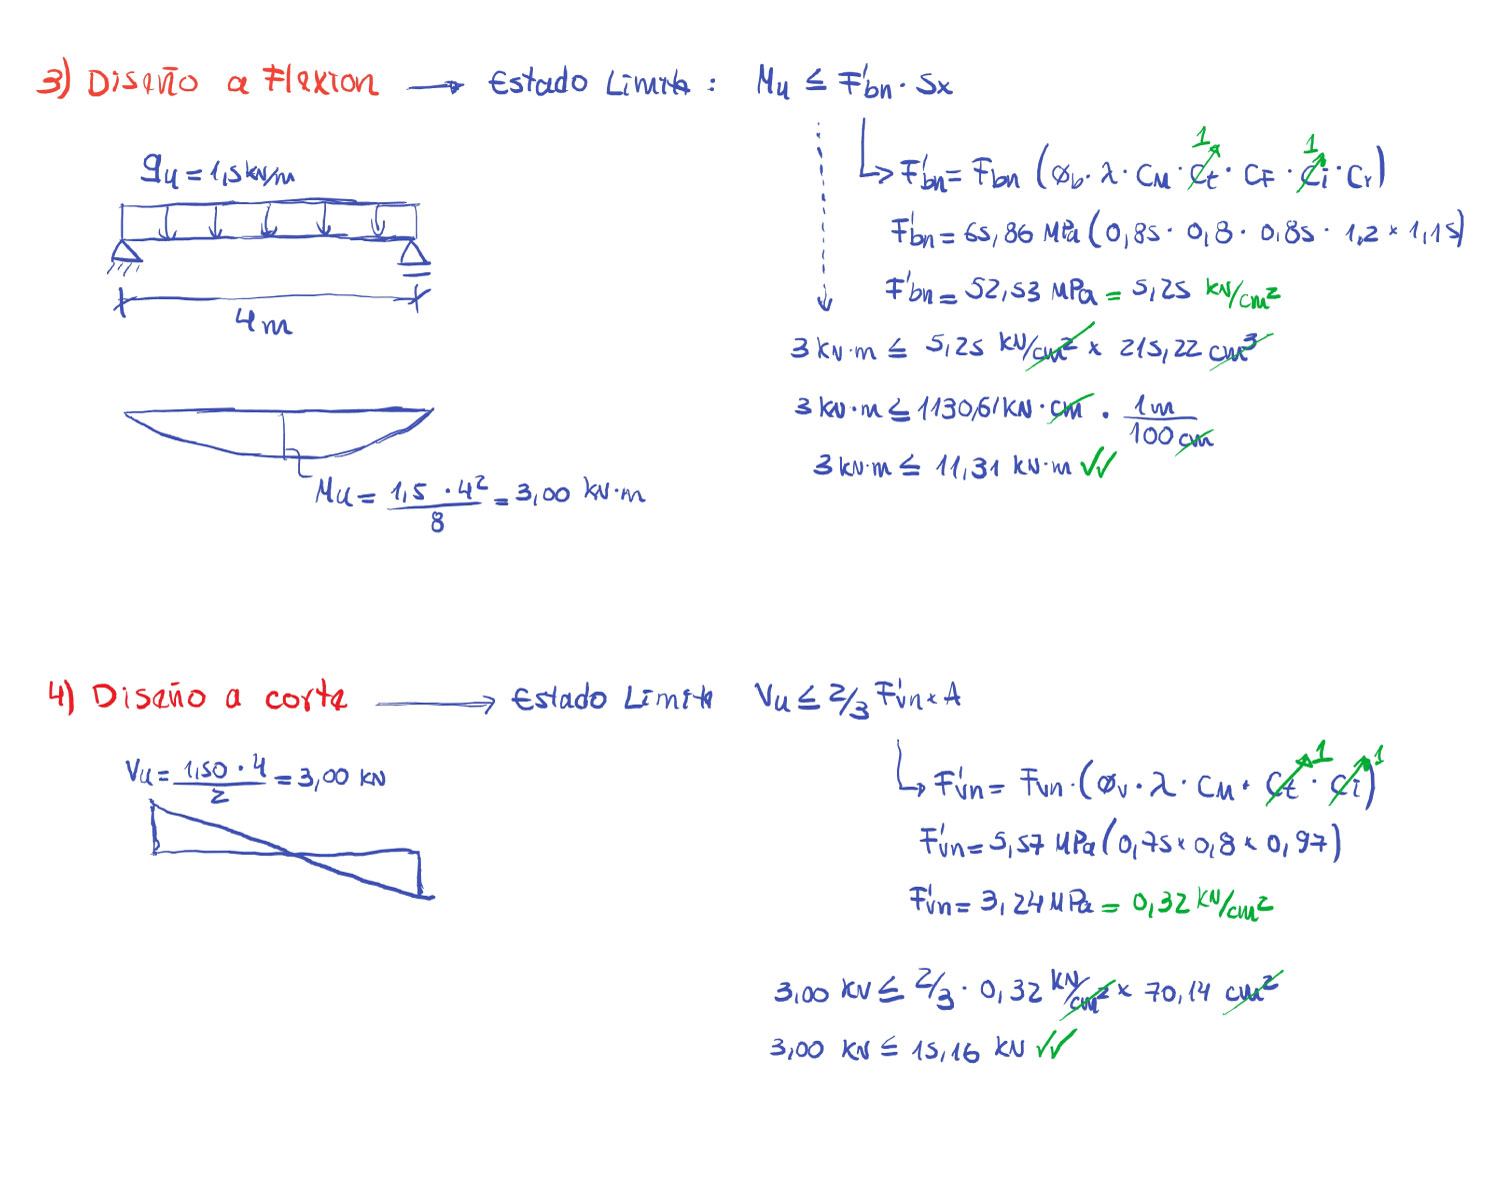 3) Diseño a Flexion → Estado Limite : Mu ≤ F'bn · Sx
qu = 1,5 kN/m
4 m
Mu = 1,5 · 4² / 8 = 3,00 kN·m
F'bn = Fbn (Øb · λ · CM · Ct · CF · Ci · Cr)
1 1
F'bn = 65,86 MPa (0,85 · 0,8 · 0,85 · 1,2 × 1,15)
F'bn = 52,53 MPa = 5,25 kN/cm²
3 kN·m ≤ 5,25 kN/cm² × 215,22 cm³
3 kN·m ≤ 1130,61 kN·cm · 1m / 100 cm
3 kN·m ≤ 11,31 kN·m ✓✓
4) Diseño a corte → Estado Limite Vu ≤ 2/3 F'vn × A
Vu = 1,50 · 4 / 2 = 3,00 kN
F'vn = Fvn · (Øv · λ · CM · Ct · Ci)
1 1
F'vn = 5,57 MPa (0,75 × 0,8 × 0,97)
F'vn = 3,24 MPa = 0,32 kN/cm²
3,00 kN ≤ 2/3 · 0,32 kN/cm² × 70,14 cm²
3,00 kN ≤ 15,16 kN ✓✓